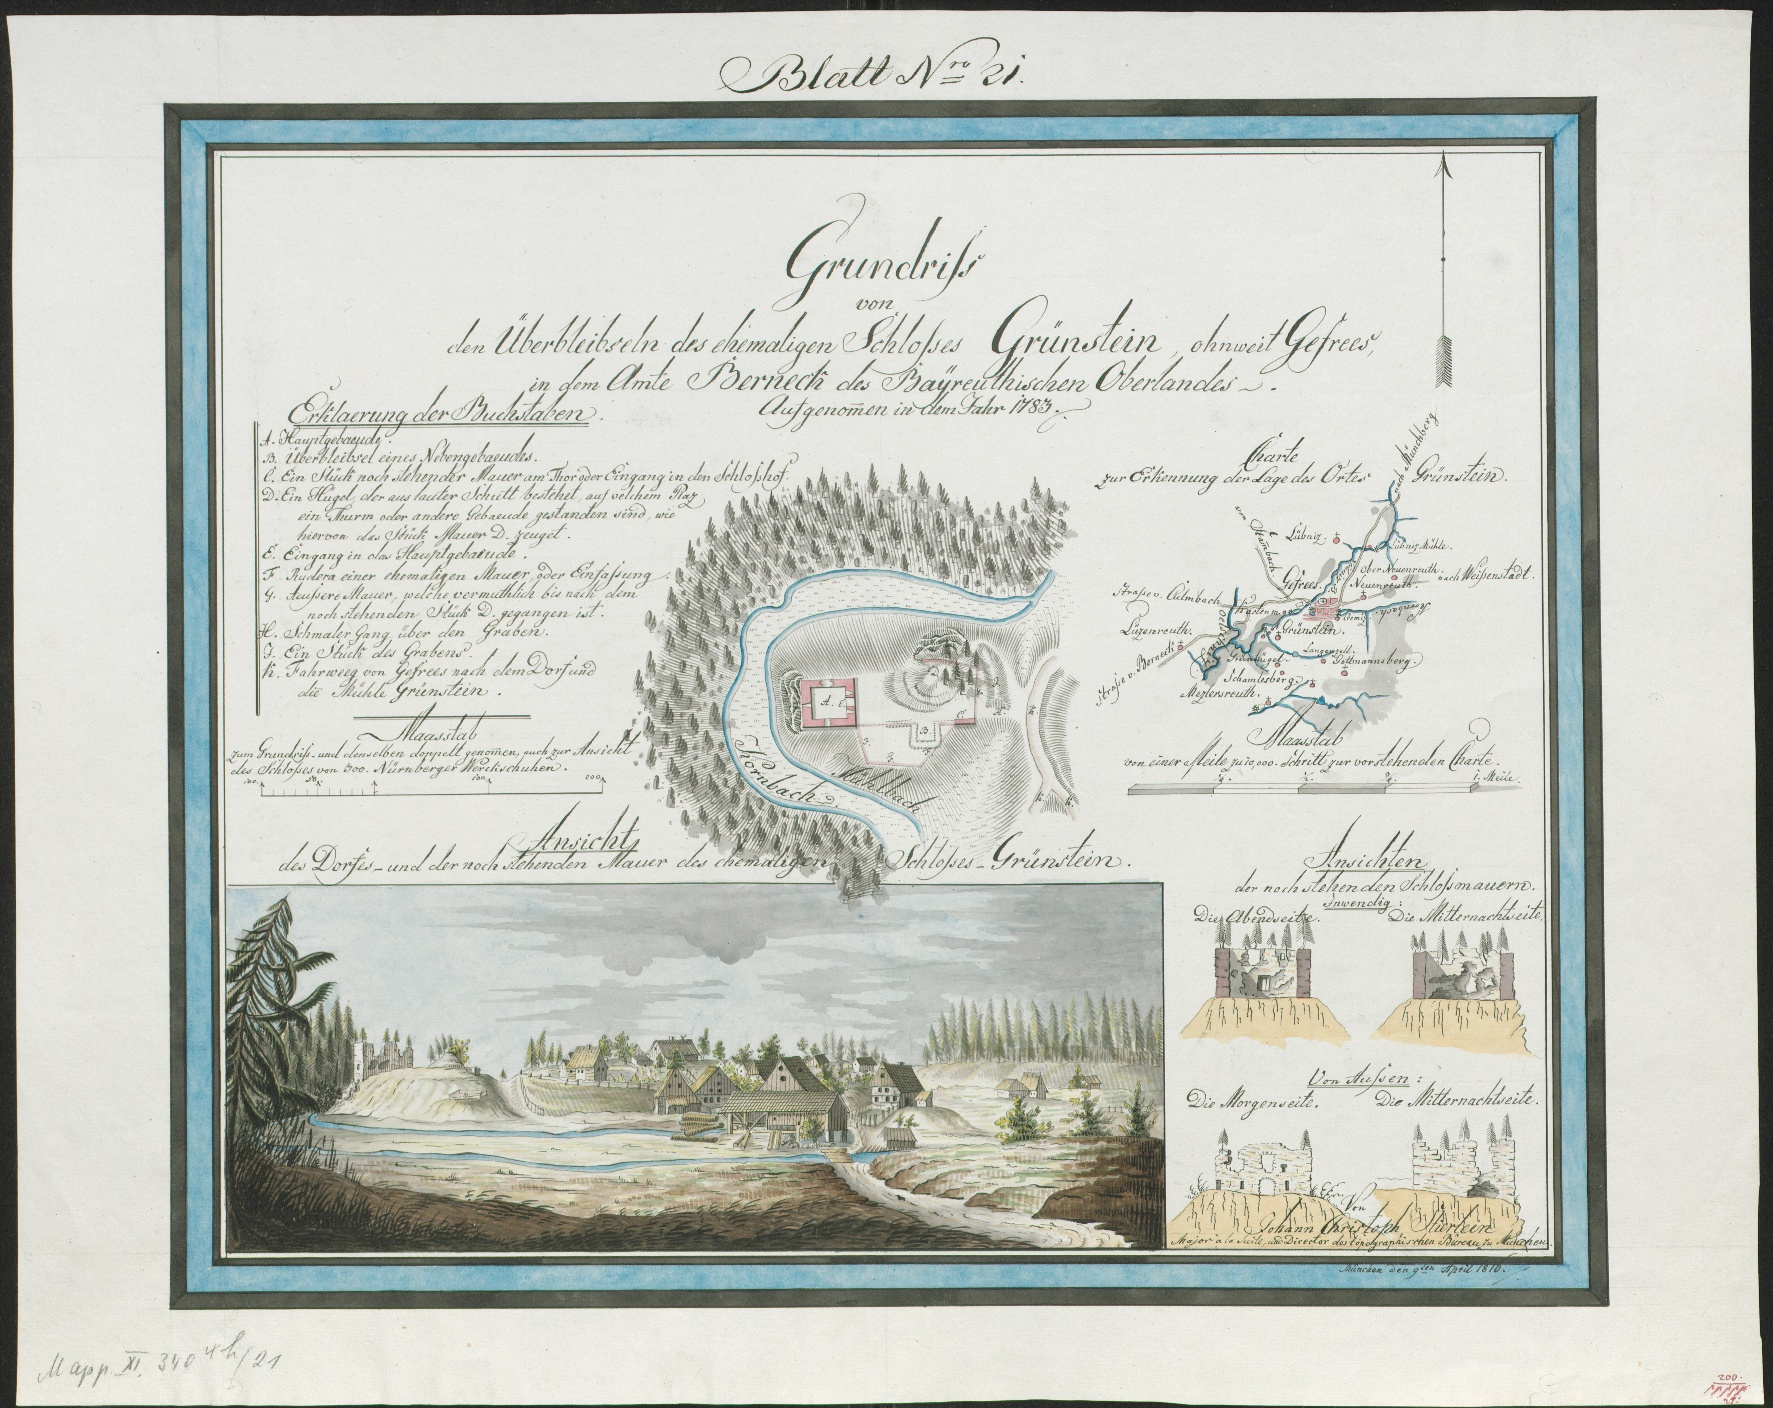 Blatt Nro 21.
Grundriſs
von
den Überbleibseln des ehemaligen Schloſses Grünstein, ohnweit Gefrees,
in dem Amte Berneck des Baÿreuthischen Oberlandes.
Aufgenom̄en in dem Jahr 1783.
Erklaerung der Buchstaben.
A. Hauptgebaeude.
B. Überbleibsel eines Nebengebaeudes.
C. Ein Stück noch stehender Mauer am Thor oder Eingang in den Schloſshof.
D. Ein Hügel, der aus lauter Schutt bestehet, auf welchem Plaz
ein Thurm oder andere Gebaeude gestanden sind, wie
hiervon das Stück Mauer D. zeuget.
E. Eingang in das Hauptgebaeude.
F. Rudera einer ehemaligen Mauer, oder Einfaſsung.
G. Aeuſsere Mauer, welche vermuthlich bis nach dem
noch stehenden Stück D. gegangen ist.
H. Schmaler Gang über den Graben.
J. Ein Stück des Grabens.
K. Fahrweeg von Gefrees nach dem Dorf und
die Mühle Grünstein.
Maasstab
zum Grundriſs und denselben doppelt genom̄en, auch zur Ansicht
des Schloſses von 300. Nürnberger Werckschuhen.
100. 50. 100. 200.
A. E.
B.
C.
Kornbach
Mühlbach
Charte
zur Erkennung der Lage des Ortes Grünstein.
nach Münchberg
von Stambach
Lübniz.
Lübniz Mühle.
Ober Neuenreuth.
Neuenreuth
nach Weiſsenstadt.
Gefrees.
Straſse v. Culmbach
Kornbach
Lüzenreuth.
Grünstein.
Straſse v. Berneck
Grünhügel.
Gottmannsberg.
Schamlesberg.
Mezlersreuth.
Maasstab
von einer Meile zu 10,000. Schritt zur vorstehenden Charte.
¼. ½. ¾. 1. Meile
Ansicht
des Dorfes und der noch stehenden Mauer des ehemaligen Schloſses Grünstein.
Ansichten
der noch stehenden Schloſsmauern.
Inwendig:
Die Abendseite. Die Mitternachtseite.
Von Auſsen:
Die Morgenseite. Die Mitternachtseite.
Von
Johann Christoph Stierlein
Major à la Suite, und Director des topographischen Büreau zu München.
München den 9ten April 1810.
Mapp. XI. 340 4h/21
200.